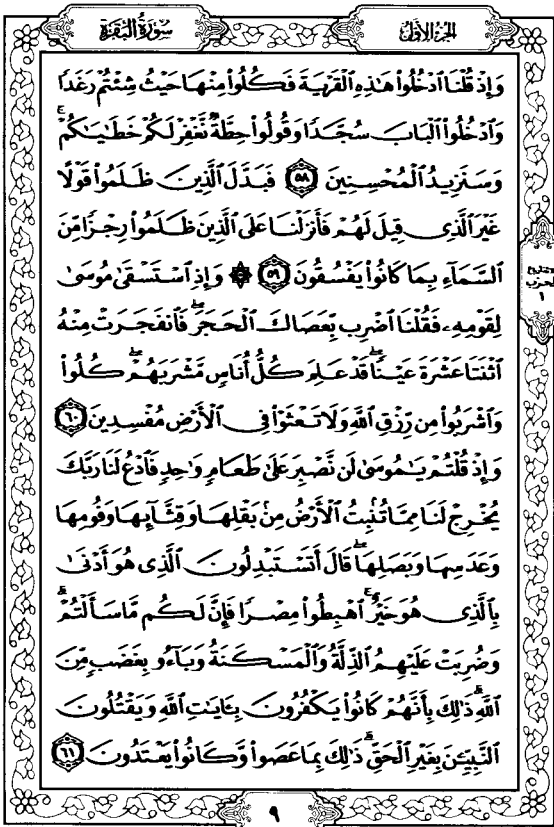 سُورَةُ البَقَرَةِ
الجُزءُ الأَوَّلُ
وَإِذْ قُلْنَا ٱدْخُلُوا۟ هَـٰذِهِ ٱلْقَرْيَةَ فَكُلُوا۟ مِنْهَا حَيْثُ شِئْتُمْ رَغَدًا
وَٱدْخُلُوا۟ ٱلْبَابَ سُجَّدًا وَقُولُوا۟ حِطَّةٌ نَّغْفِرْ لَكُمْ خَطَـٰيَـٰكُمْ ۚ
وَسَنَزِيدُ ٱلْمُحْسِنِينَ ٥٨ فَبَدَّلَ ٱلَّذِينَ ظَلَمُوا۟ قَوْلًا
غَيْرَ ٱلَّذِى قِيلَ لَهُمْ فَأَنزَلْنَا عَلَى ٱلَّذِينَ ظَلَمُوا۟ رِجْزًا مِّنَ
ٱلسَّمَآءِ بِمَا كَانُوا۟ يَفْسُقُونَ ٥٩ ۞ وَإِذِ ٱسْتَسْقَىٰ مُوسَىٰ
لِقَوْمِهِۦ فَقُلْنَا ٱضْرِب بِّعَصَاكَ ٱلْحَجَرَ ۖ فَٱنفَجَرَتْ مِنْهُ
ٱثْنَتَا عَشْرَةَ عَيْنًا ۖ قَدْ عَلِمَ كُلُّ أُنَاسٍ مَّشْرَبَهُمْ ۖ كُلُوا۟
وَٱشْرَبُوا۟ مِن رِّزْقِ ٱللَّهِ وَلَا تَعْثَوْا۟ فِى ٱلْأَرْضِ مُفْسِدِينَ ٦٠
وَإِذْ قُلْتُمْ يَـٰمُوسَىٰ لَن نَّصْبِرَ عَلَىٰ طَعَامٍ وَٰحِدٍ فَٱدْعُ لَنَا رَبَّكَ
يُخْرِجْ لَنَا مِمَّا تُنۢبِتُ ٱلْأَرْضُ مِنۢ بَقْلِهَا وَقِثَّآئِهَا وَفُومِهَا
وَعَدَسِهَا وَبَصَلِهَا ۖ قَالَ أَتَسْتَبْدِلُونَ ٱلَّذِى هُوَ أَدْنَىٰ
بِٱلَّذِى هُوَ خَيْرٌ ۚ ٱهْبِطُوا۟ مِصْرًا فَإِنَّ لَكُم مَّا سَأَلْتُمْ ۗ
وَضُرِبَتْ عَلَيْهِمُ ٱلذِّلَّةُ وَٱلْمَسْكَنَةُ وَبَآءُو بِغَضَبٍ مِّنَ
ٱللَّهِ ۗ ذَٰلِكَ بِأَنَّهُمْ كَانُوا۟ يَكْفُرُونَ بِـَٔايَـٰتِ ٱللَّهِ وَيَقْتُلُونَ
ٱلنَّبِيِّـۧنَ بِغَيْرِ ٱلْحَقِّ ۗ ذَٰلِكَ بِمَا عَصَوا۟ وَّكَانُوا۟ يَعْتَدُونَ ٦١
٩